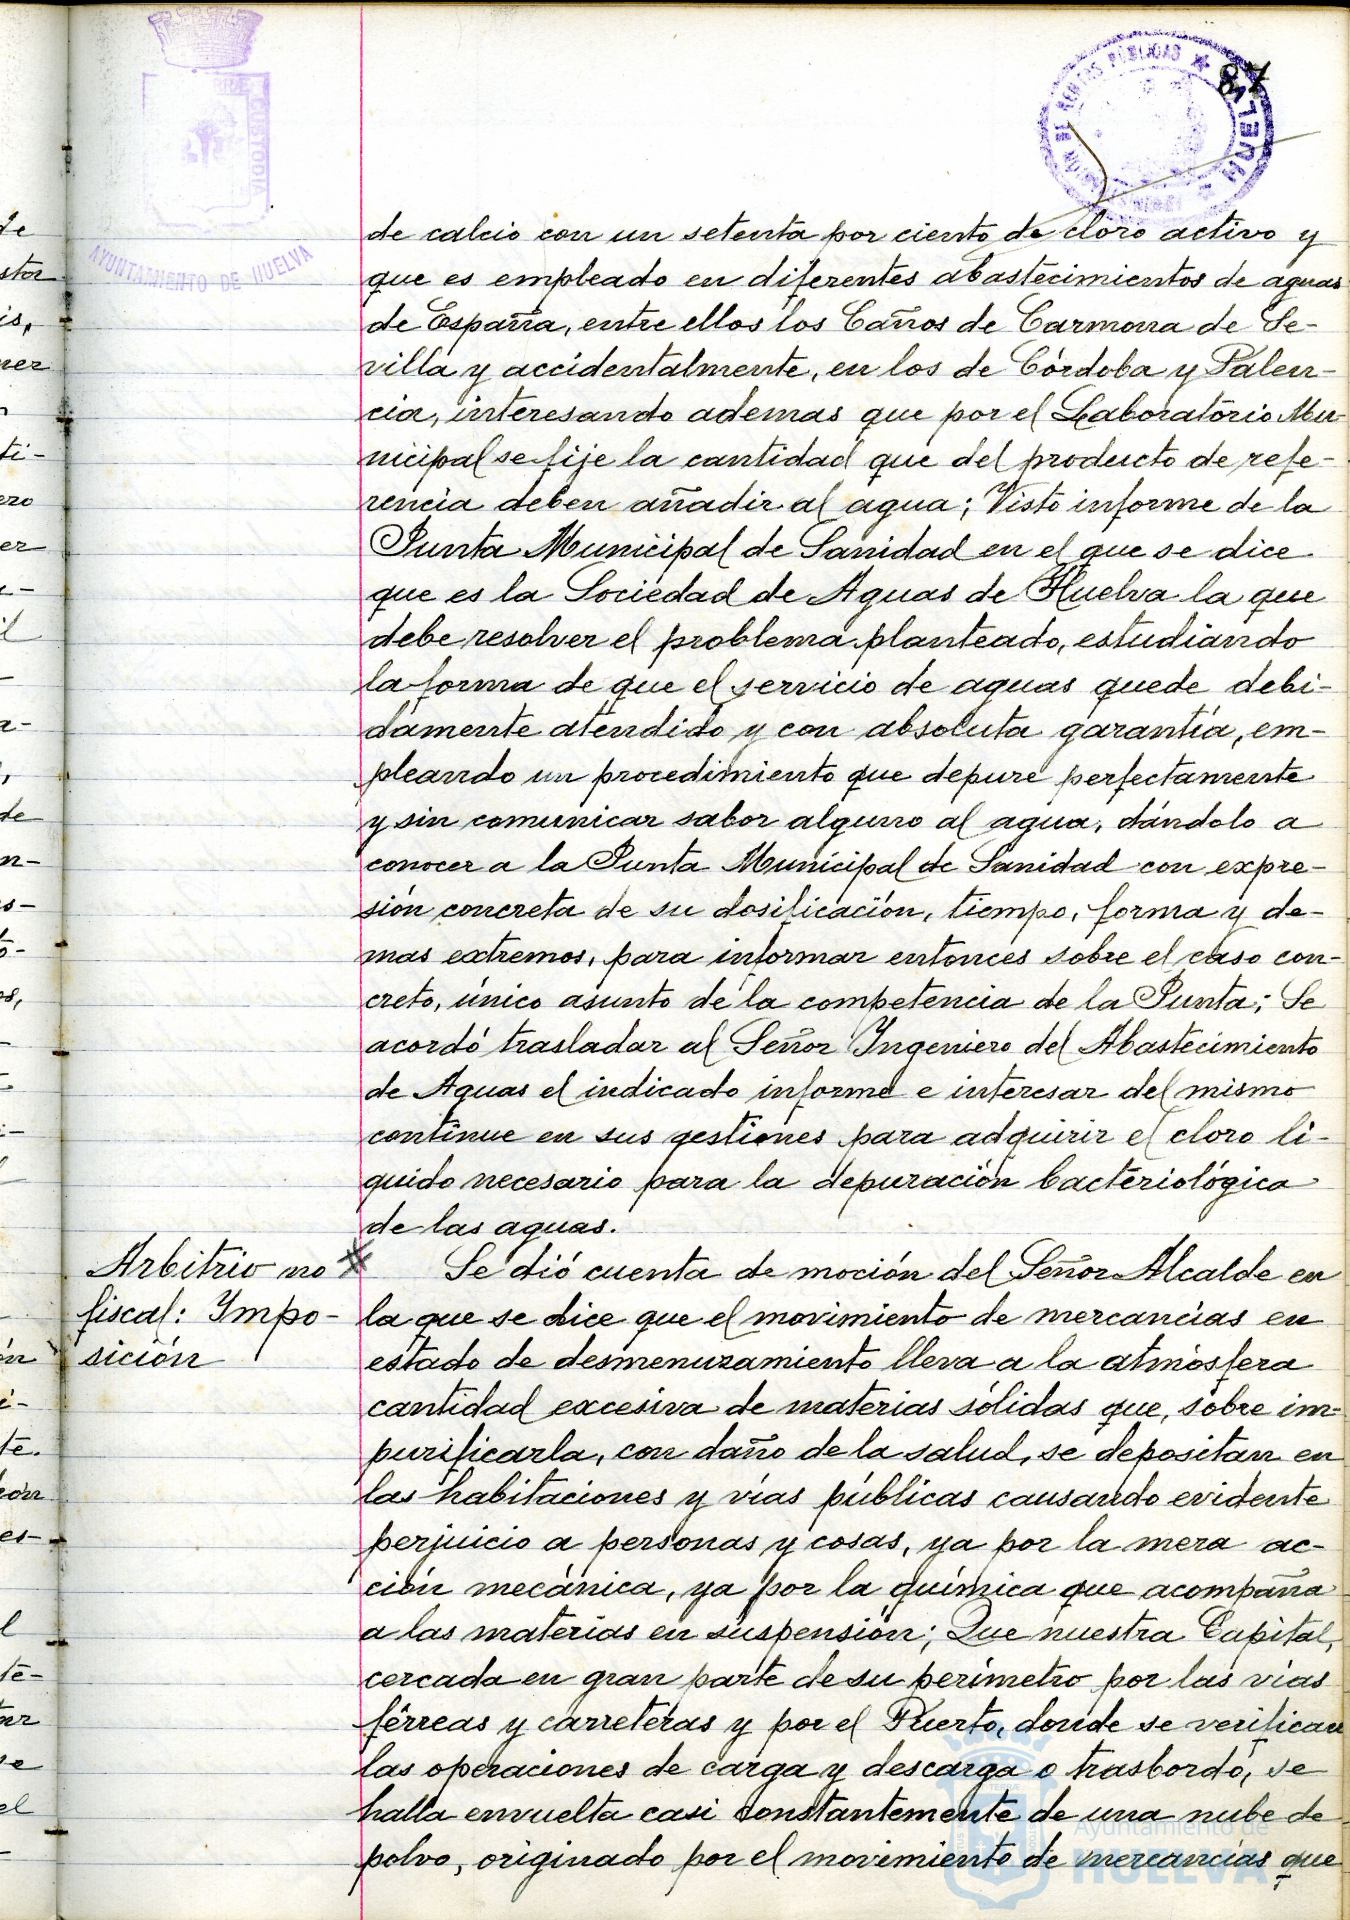 87
AYUNTAMIENTO DE HUELVA
CUSTODIA
PUBLICAS
HUELVA
de calcio con un setenta por ciento de cloro activo y
que es empleado en diferentes abastecimientos de aguas
de España, entre ellos los Caños de Carmona de Se-
villa y accidentalmente, en los de Córdoba y Palen-
cia, interesando ademas que por el Laboratorio Mu-
nicipal se fije la cantidad que del producto de refe-
rencia deben añadir al agua; Visto informe de la
Junta Municipal de Sanidad en el que se dice
que es la Sociedad de Aguas de Huelva la que
debe resolver el problema planteado, estudiando
la forma de que el servicio de aguas quede debi-
damente atendido y con absoluta garantía, em-
pleando un procedimiento que depure perfectamente
y sin comunicar sabor alguno al agua, dándolo a
conocer a la Junta Municipal de Sanidad con expre-
sión concreta de su dosificación, tiempo, forma y de-
mas extremos, para informar entonces sobre el caso con-
creto, único asunto de la competencia de la Junta; Se
acordó trasladar al Señor Ingeniero del Abastecimiento
de Aguas el indicado informe e interesar del mismo
continue en sus gestiones para adquirir el cloro li-
quido necesario para la depuración bacteriológica
de las aguas.
Arbitrio no
fiscal: Impo-
sición
Se dió cuenta de moción del Señor Alcalde en
la que se dice que el movimiento de mercancías en
estado de desmenuzamiento lleva a la atmósfera
cantidad excesiva de materias sólidas que, sobre im-
purificarla, con daño de la salud, se depositan en
las habitaciones y vías públicas causando evidente
perjuicio a personas y cosas, ya por la mera ac-
ción mecánica, ya por la química que acompaña
a las materias en suspensión; Que nuestra Capital,
cercada en gran parte de su perímetro por las vías
férreas y carreteras y por el Puerto, donde se verifican
las operaciones de carga y descarga o trasbordo, se
halla envuelta casi constantemente de una nube de
polvo, originado por el movimiento de mercancías que
Ayuntamiento de
HUELVA